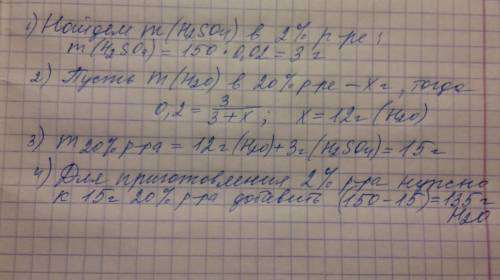 1) Найдем m(H2SO4) в 2% р-ре:
m(H2SO4) = 150 · 0,02 = 3 г
2) Пусть m(H2O) в 20% р-ре - x г, тогда
0,2 = 3/3+x ; x = 12 г (H2O)
3) m 20% р-ра = 12 г (H2O) + 3 г (H2SO4) = 15 г
4) Для приготовления 2% р-ра нужно
к 15 г 20% р-ра добавить (150 - 15) = 135 г
H2O